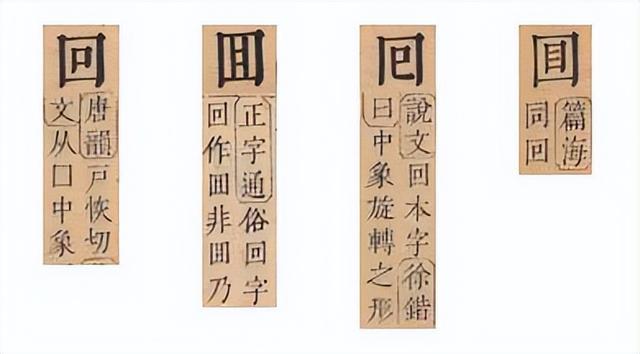 回
唐韻戶恢切
文从囗中象
囬
正字通俗回字
回作囬非囬乃
囘
說文回本字徐鍇
曰中象旋轉之形
𡇌
篇海
同回